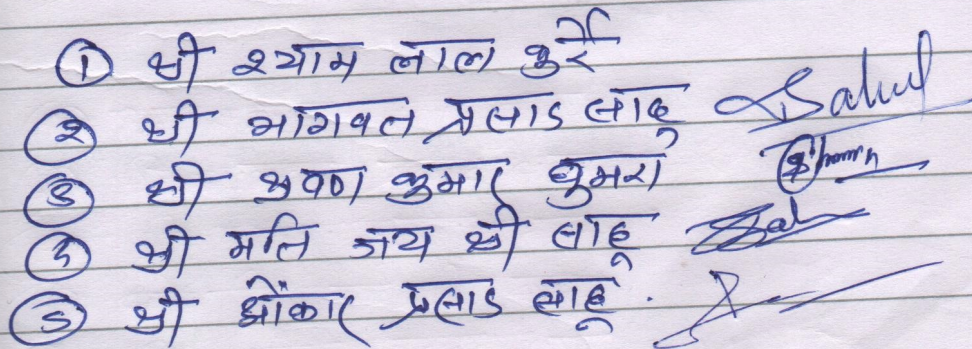 ① श्री श्याम लाल कुर्रे
② श्री भागवत प्रसाद साहू Sahu
③ श्री श्रवण कुमार घुमरा
④ श्री मति जय श्री साहू Sahu
⑤ श्री ओंकार प्रसाद साहू.